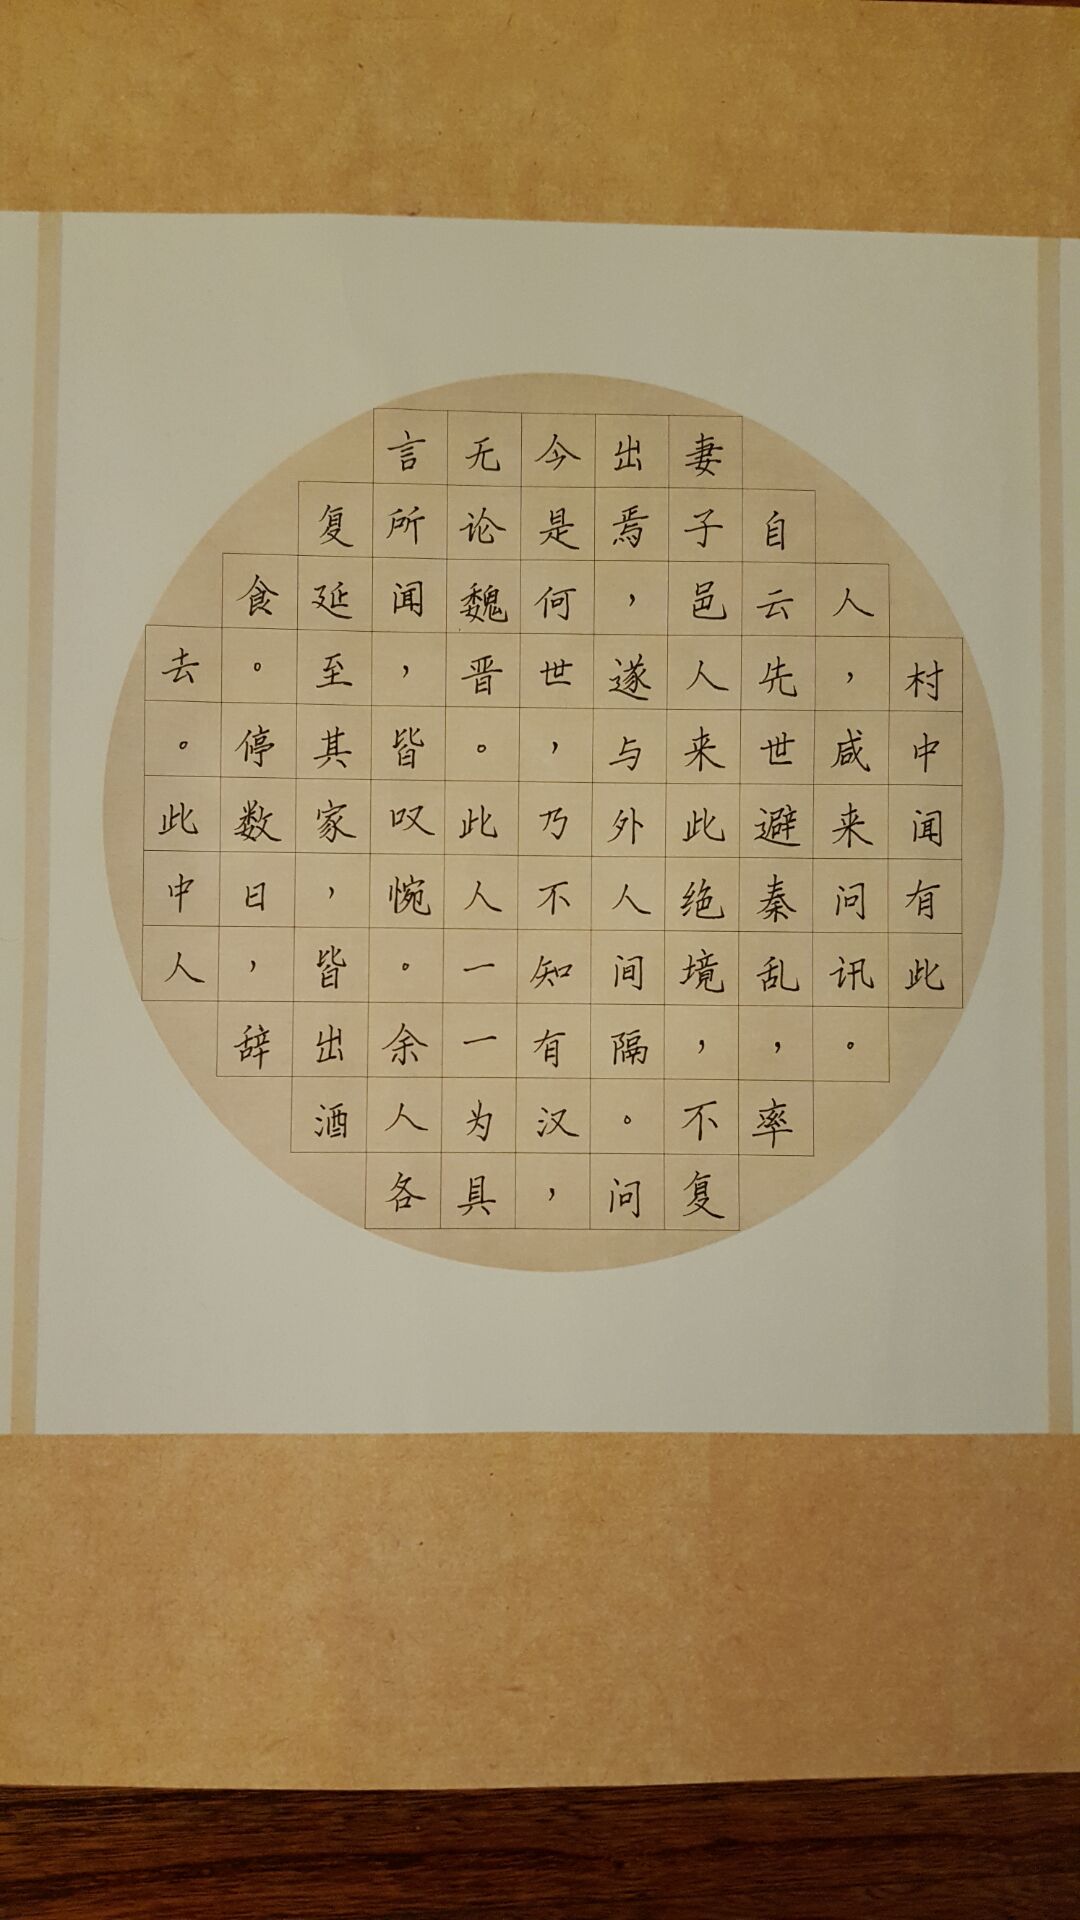 村中闻有此
人，咸来问讯。
自云先世避秦乱，率
妻子邑人来此绝境，不复
出焉，遂与外人间隔。问
今是何世，乃不知有汉，
无论魏晋。此人一一为具
言所闻，皆叹惋。余人各
复延至其家，皆出酒
食。停数日，辞
去。此中人